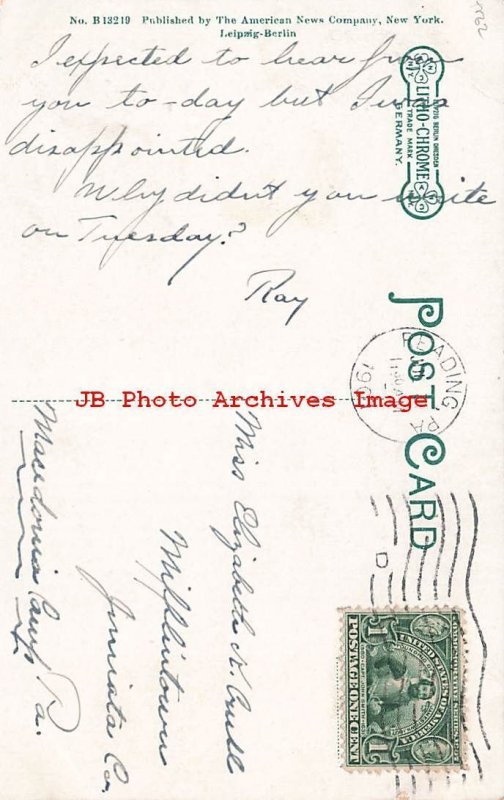 No. B 13219 Published by The American News Company, New York.
Leipzig-Berlin
I expected to hear from
you to-day but I was
disappointed.
Why didn't you write
on Tuesday?
Ray
LEIPZIG BERLIN DRESDEN
LITHO-CHROME
TRADE MARK
GERMANY.
POST CARD
READING
PA
190
11 30 A
D
JB Photo Archives Image
Miss Elizabeth N.
Mifflintown
Juniata Co.
Macedonia Camp Pa.
COMMEMORATIVE SERIES 1907
UNITED STATES OF AMERICA
POSTAGE ONE CENT
1 1